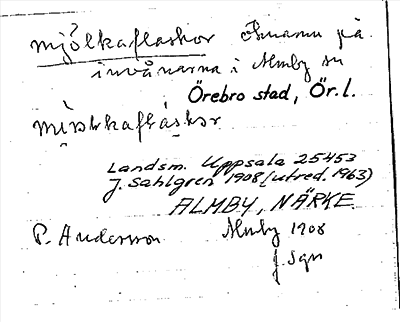 mjölkaflaskor öknamn på
invånarna i Almby sn
Örebro stad, Ör. l.
Landsm. Uppsala 25453
J. Sahlgren 1908 (utred. 1963)
ALMBY, NÄRKE.
P. Andersson Almby 1908
J. Sgn